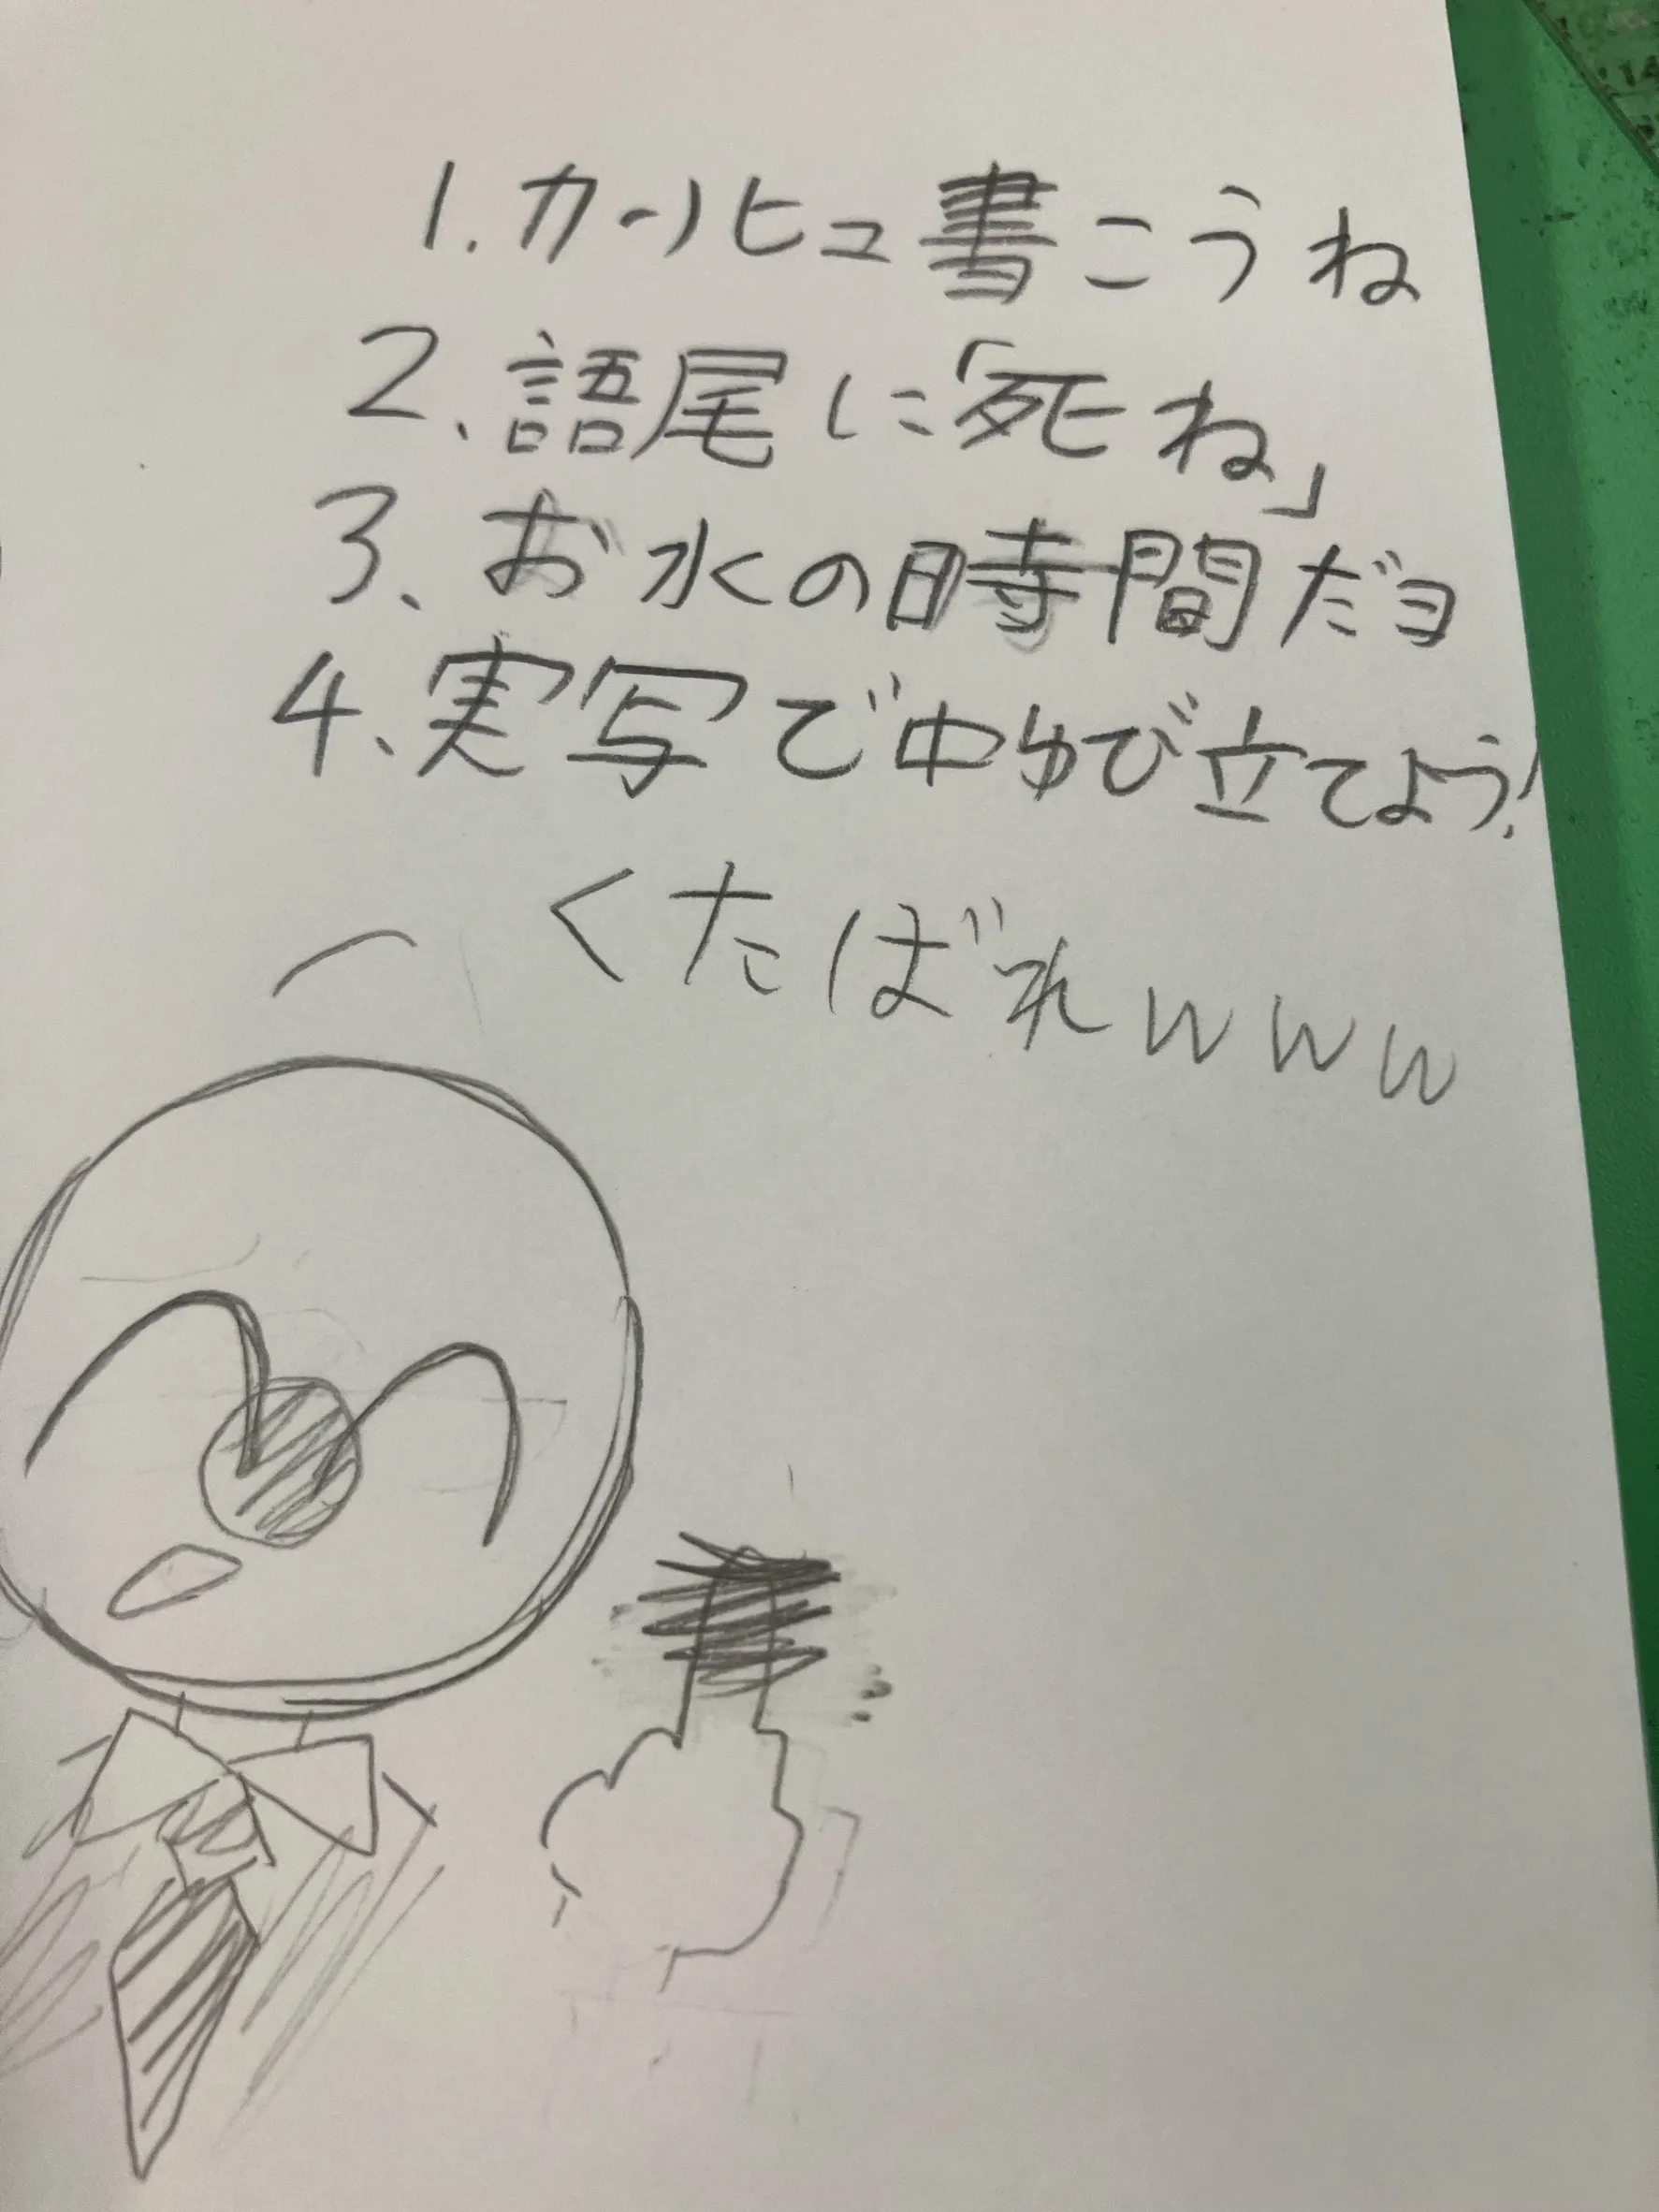 1. カーソヒュ書こうね
2. 語尾に「死ね」
3. お水の時間だヨ
4. 実写で中ゆび立てよう!
くたばれwww